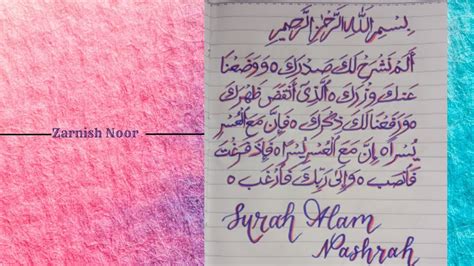 Zarnish Noor
بِسْمِ اللّٰهِ الرَّحْمٰنِ الرَّحِيْمِ
أَلَمْ نَشْرَحْ لَكَ صَدْرَكَ ٥ وَوَضَعْنَا
عَنْكَ وِزْرَكَ ٥ الَّذِي أَنْقَضَ ظَهْرَكَ
٥ وَرَفَعْنَا لَكَ ذِكْرَكَ ٥ فَإِنَّ مَعَ الْعُسْرِ
يُسْرًا ٥ إِنَّ مَعَ الْعُسْرِ يُسْرًا ٥ فَإِذَا فَرَغْتَ
فَانْصَبْ ٥ وَإِلَى رَبِّكَ فَارْغَبْ ٥
Surah Alam
Nashrah